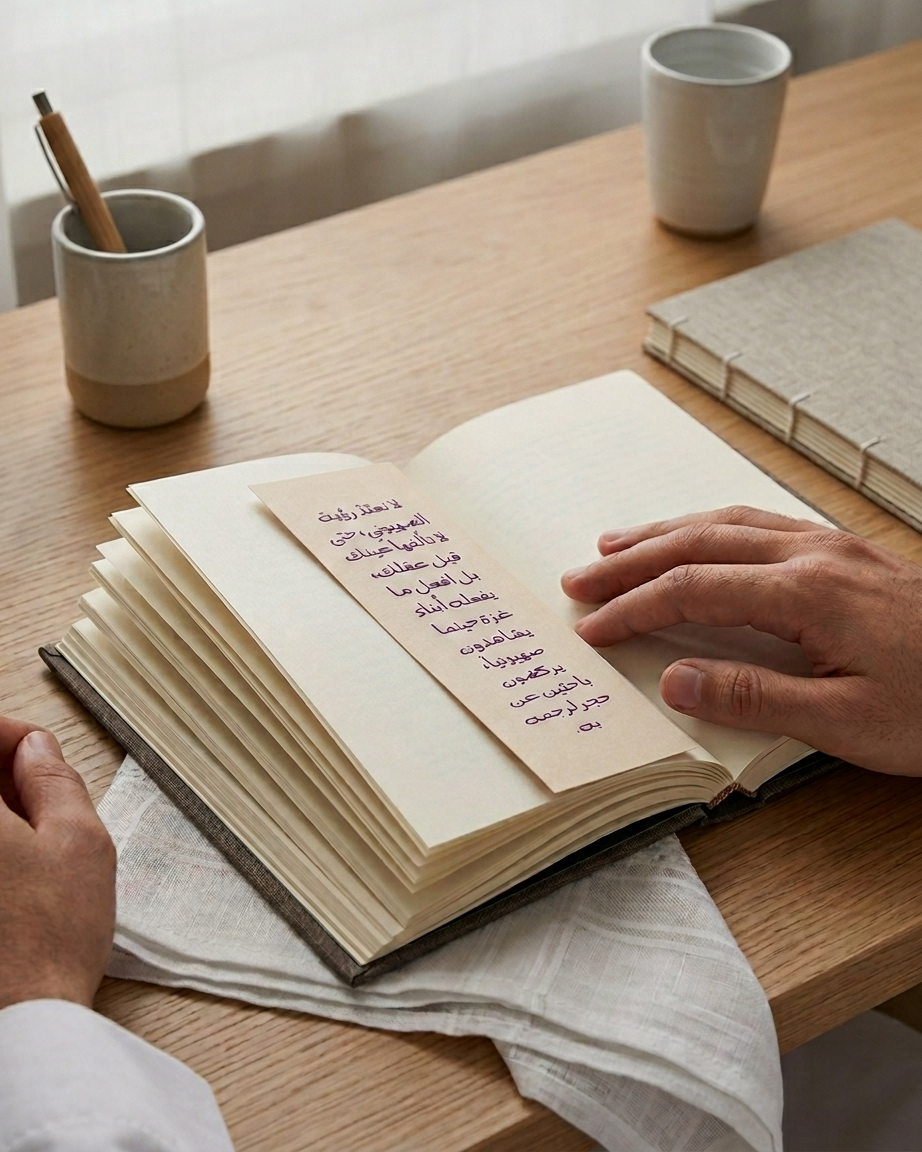 لا تعتَدْ رؤية
الصهيوني، حتى
لا تألفها عينك
قبل عقلك،
بل افعل ما
يفعله أبناء
غزة حينما
يشاهدون
صهيونيا،
يركضون
باحثين عن
حجر لرجمه
به.